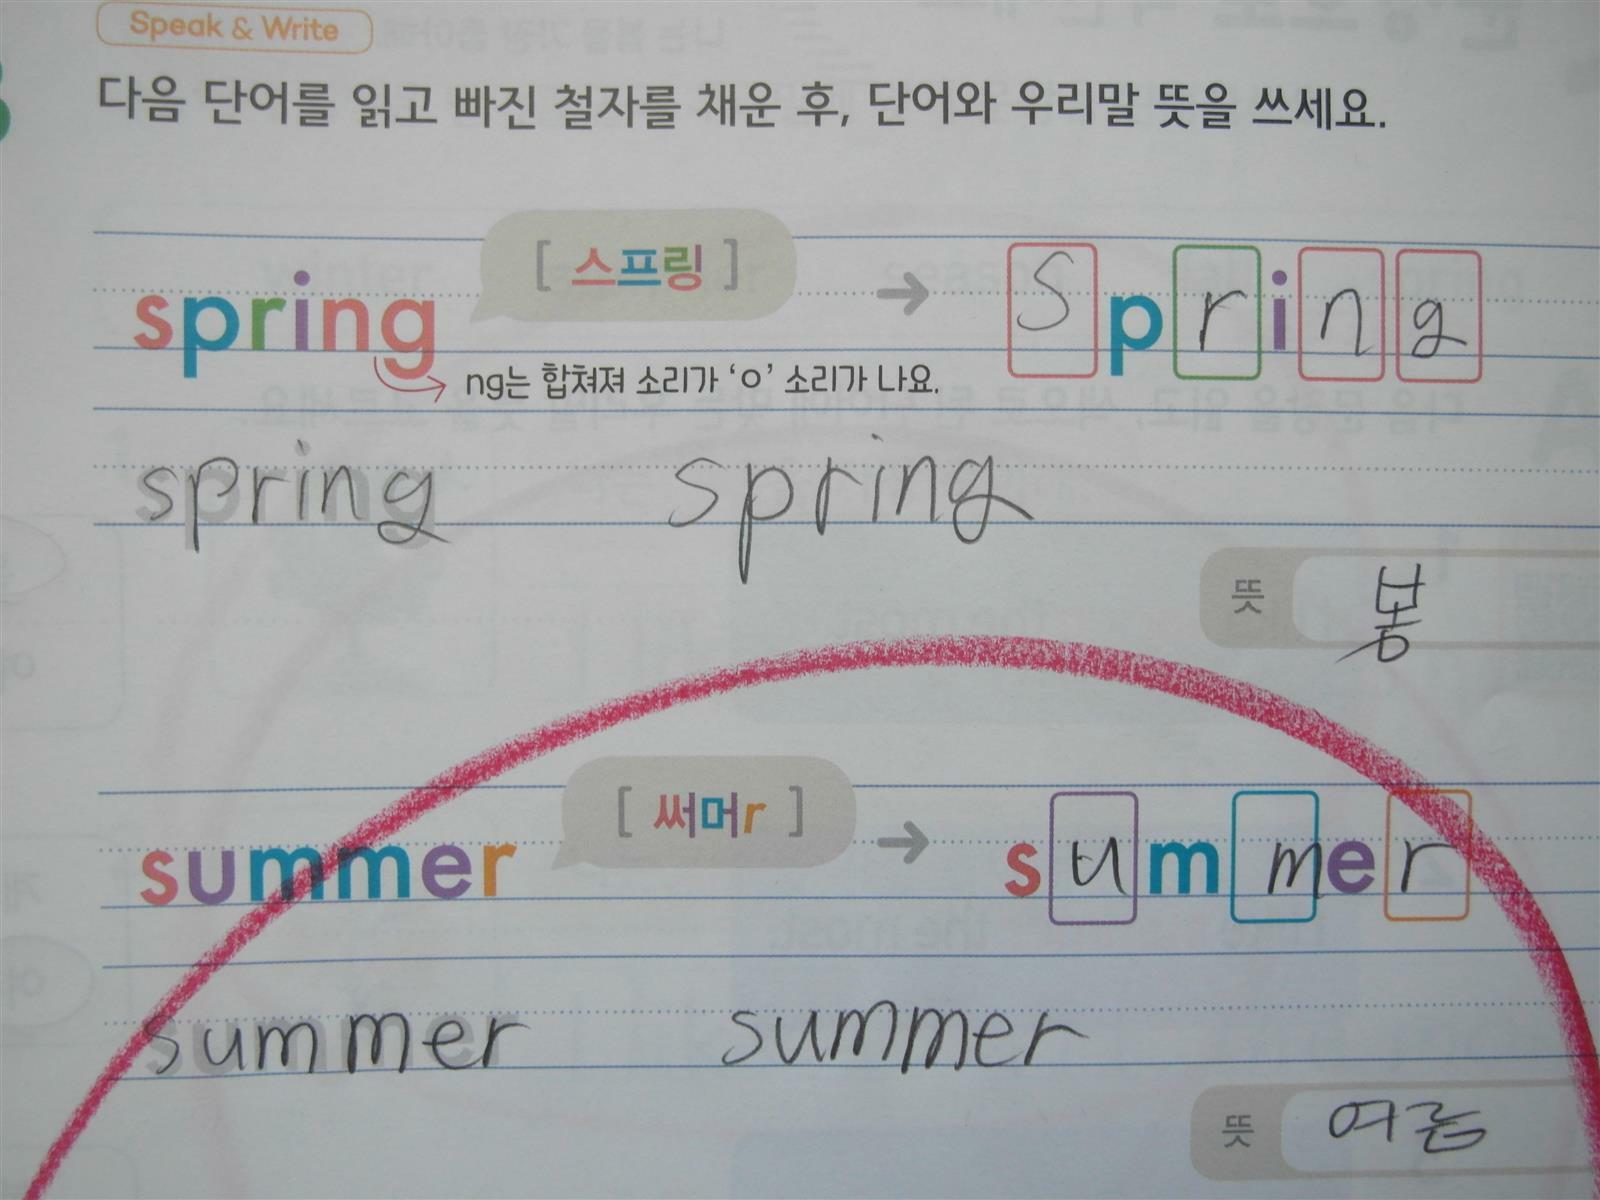 Speak & Write
다음 단어를 읽고 빠진 철자를 채운 후, 단어와 우리말 뜻을 쓰세요.
spring [스프링] → spring
ng는 합쳐져 소리가 'ㅇ' 소리가 나요.
spring spring
뜻 봄
summer [써머r] → summer
summer summer
뜻 여름